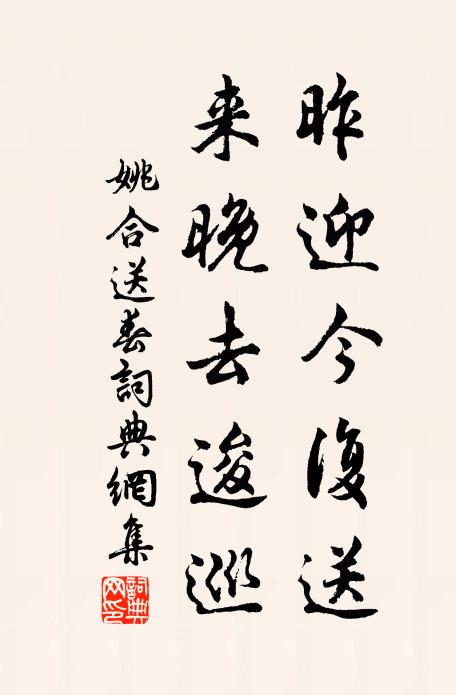 昨迎今復送
来晚去逡巡
姚合送春詞典網集
詞典网印